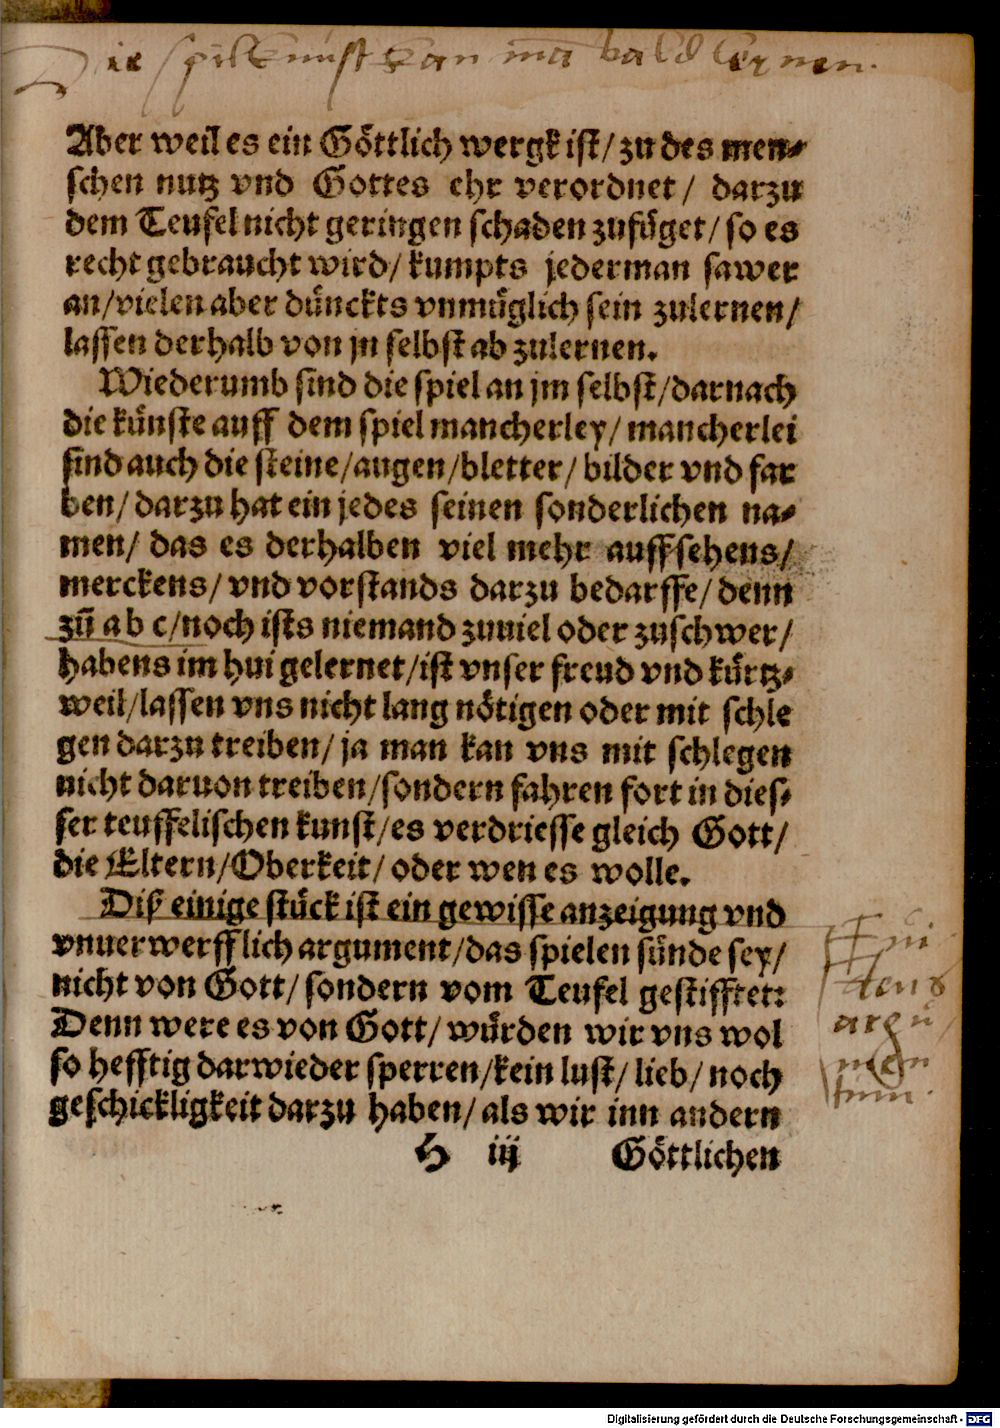 Die spilkunst kan mā bald lernen.
Aber weil es ein Göttlich wergk ist/ zu des men⸗
schen nutz vnd Gottes ehr verordnet/ darzu
dem Teufel nicht geringen schaden zufüget/ so es
recht gebraucht wird/ kumpts jederman sawer
an/ vielen aber dünckts vnmüglich sein zulernen/
lassen derhalb von jn selbst ab zulernen.
Wiederumb sind die spiel an jm selbst/ darnach
die künste auff dem spiel mancherley/ mancherlei
sind auch die steine/ augen/ bletter/ bilder vnd far
ben/ darzu hat ein jedes seinen sonderlichen na⸗
men/ das es derhalben viel mehr auffsehens/
merckens/ vnd vorstands darzu bedarffe/ denn
zū a b c/ noch ists niemand zuuiel oder zuschwer/
habens im hui gelernet/ ist vnser freud vnd kürtz⸗
weil/ lassen vns nicht lang nötigen oder mit schle
gen darzu treiben/ ja man kan vns mit schlegen
nicht daruon treiben/ sondern fahren fort in dies⸗
ser teuffelischen kunst/ es verdriesse gleich Gott/
die Eltern/ Oberkeit/ oder wen es wolle.
Diß einige stück ist ein gewisse anzeigung vnd
vnuerwerfflich argument/ das spielen sünde sey/
nicht von Gott/ sondern vom Teufel gestifftet:
Denn were es von Gott/ würden wir vns wol
so hefftig darwieder sperren/ kein lust/ lieb/ noch
geschickligkeit darzu haben/ als wir inn andern
H iij Göttlichen
Eui
dens
argu
men
tum.
Digitalisierung gefördert durch die Deutsche Forschungsgemeinschaft - DFG